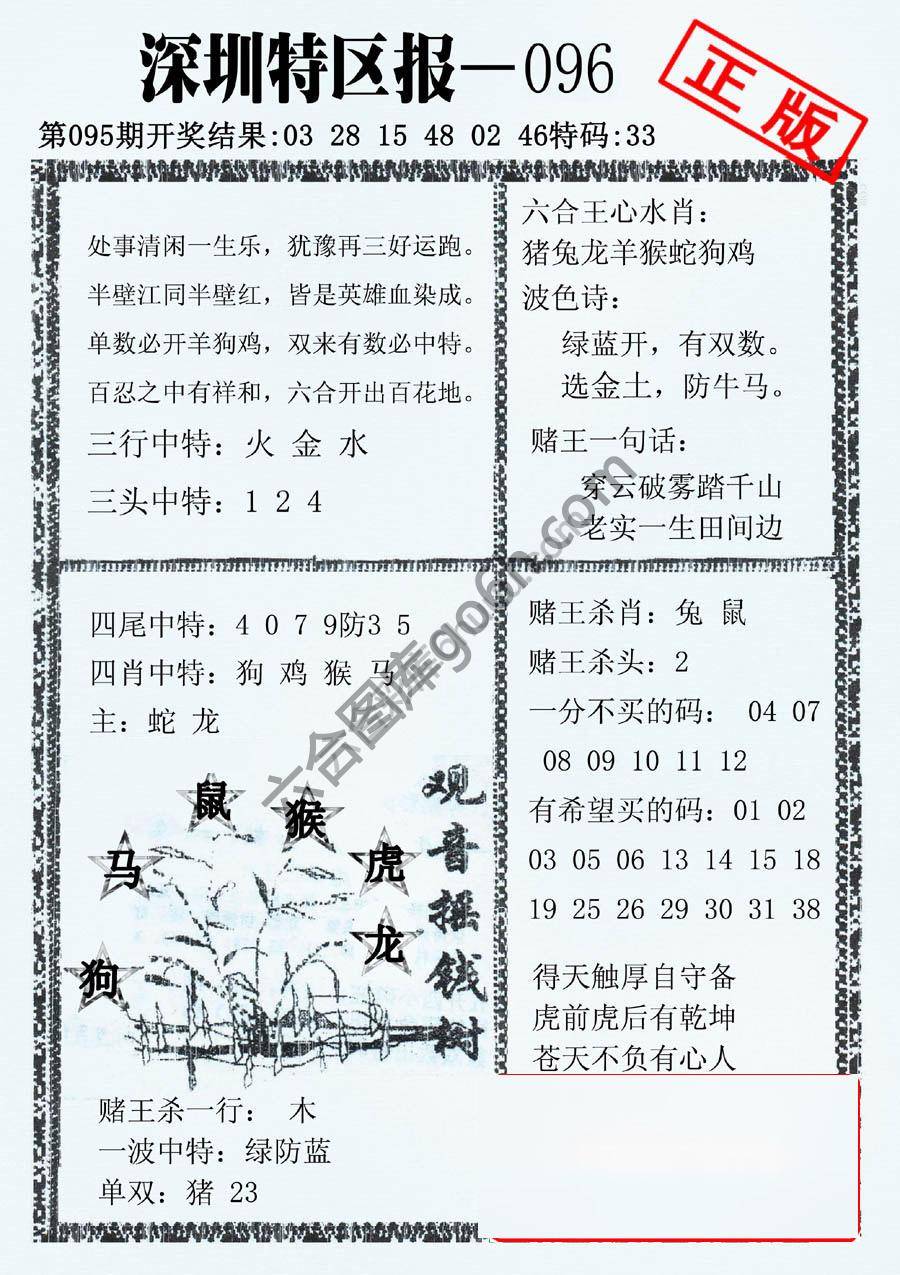 深圳特区报—096
正版
第095期开奖结果:03 28 15 48 02 46特码:33
处事清闲一生乐，犹豫再三好运跑。
半壁江同半壁红，皆是英雄血染成。
单数必开羊狗鸡，双来有数必中特。
百忍之中有祥和，六合开出百花地。
三行中特：火 金 水
三头中特：1 2 4
六合王心水肖：
猪兔龙羊猴蛇狗鸡
波色诗：
绿蓝开，有双数。
选金土，防牛马。
赌王一句话：
穿云破雾踏千山
老实一生田间边
四尾中特：4 0 7 9防3 5
四肖中特：狗 鸡 猴 马
主：蛇 龙
鼠
猴
马
虎
狗
龙
观音摇钱树
赌王杀一行： 木
一波中特：绿防蓝
单双：猪 23
赌王杀肖：兔 鼠
赌王杀头：2
一分不买的码： 04 07
08 09 10 11 12
有希望买的码：01 02
03 05 06 13 14 15 18
19 25 26 29 30 31 38
得天触厚自守备
虎前虎后有乾坤
苍天不负有心人
六合图库go6h.com